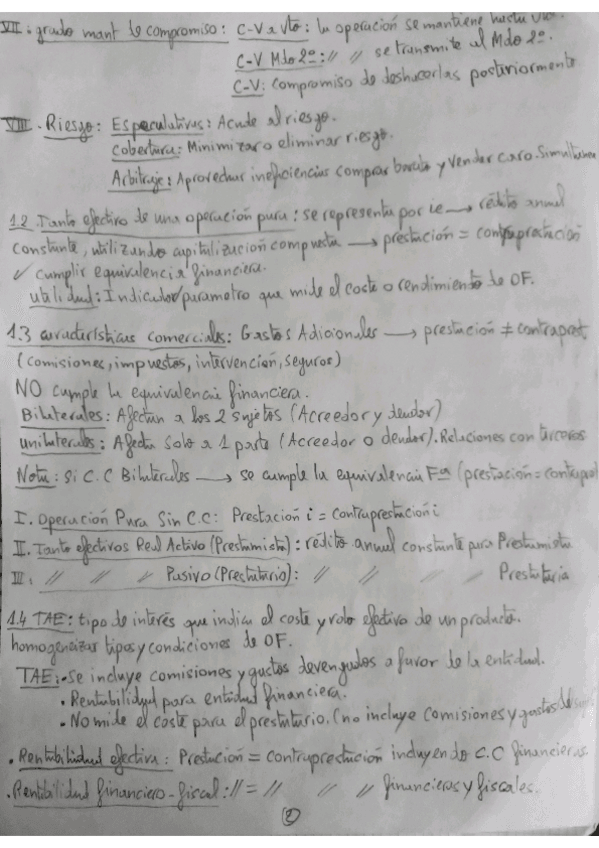 VII. grado mant de compromiso: C-V a Vto: la operación se mantiene hasta Vto.
C-V Mdo 2º: // // se transmite al Mdo 2º.
C-V: compromiso de deshacerlas posteriormente
VIII. Riesgo: Especulativas: Acude al riesgo.
Cobertura: Minimizar o eliminar riesgo.
Arbitraje: Aprovechar ineficiencias comprar barato y vender caro. Simultánea
1.2. Tanto efectivo de una operación pura: se representa por ie → rédito anual
constante, utilizando capitalización compuesta → prestación = contraprestación
✓ cumplir equivalencia financiera.
utilidad: Indicador/parametro que mide el coste o rendimiento de OF.
1.3 características comerciales: Gastos Adicionales → prestación ≠ contraprest.
(comisiones, impuestos, intervención, seguros)
NO cumple la equivalencia financiera.
Bilaterales: Afectan a los 2 sujetos (Acreedor y deudor)
unilaterales: Afecta solo a 1 parte (Acreedor o deudor). Relaciones con terceros
Nota: si C.C Bilaterales → se cumple la equivalencia Fª (prestación = contrapest)
I. Operación Pura Sin C.C: Prestación i = Contraprestación i
II. Tanto efectivos Real Activo (Prestamista): rédito anual constante para Prestamista
III: // // // Pasivo (Prestatario): // // // Prestataria
1.4 TAE: tipo de interés que indica el coste y/o efectivo de un producto.
homogeneizar tipos y condiciones de OF.
TAE: - Se incluye comisiones y gastos devengados a favor de la entidad.
• Rentabilidad para entidad financiera.
• No mide el coste para el prestatario. (no incluye comisiones y gastos de
• Rentabilidad efectiva: Prestación = contraprestación incluyendo C.C financieras.
• Rentibilidad financiero-fiscal: // = // // // financieras y fiscales.
2